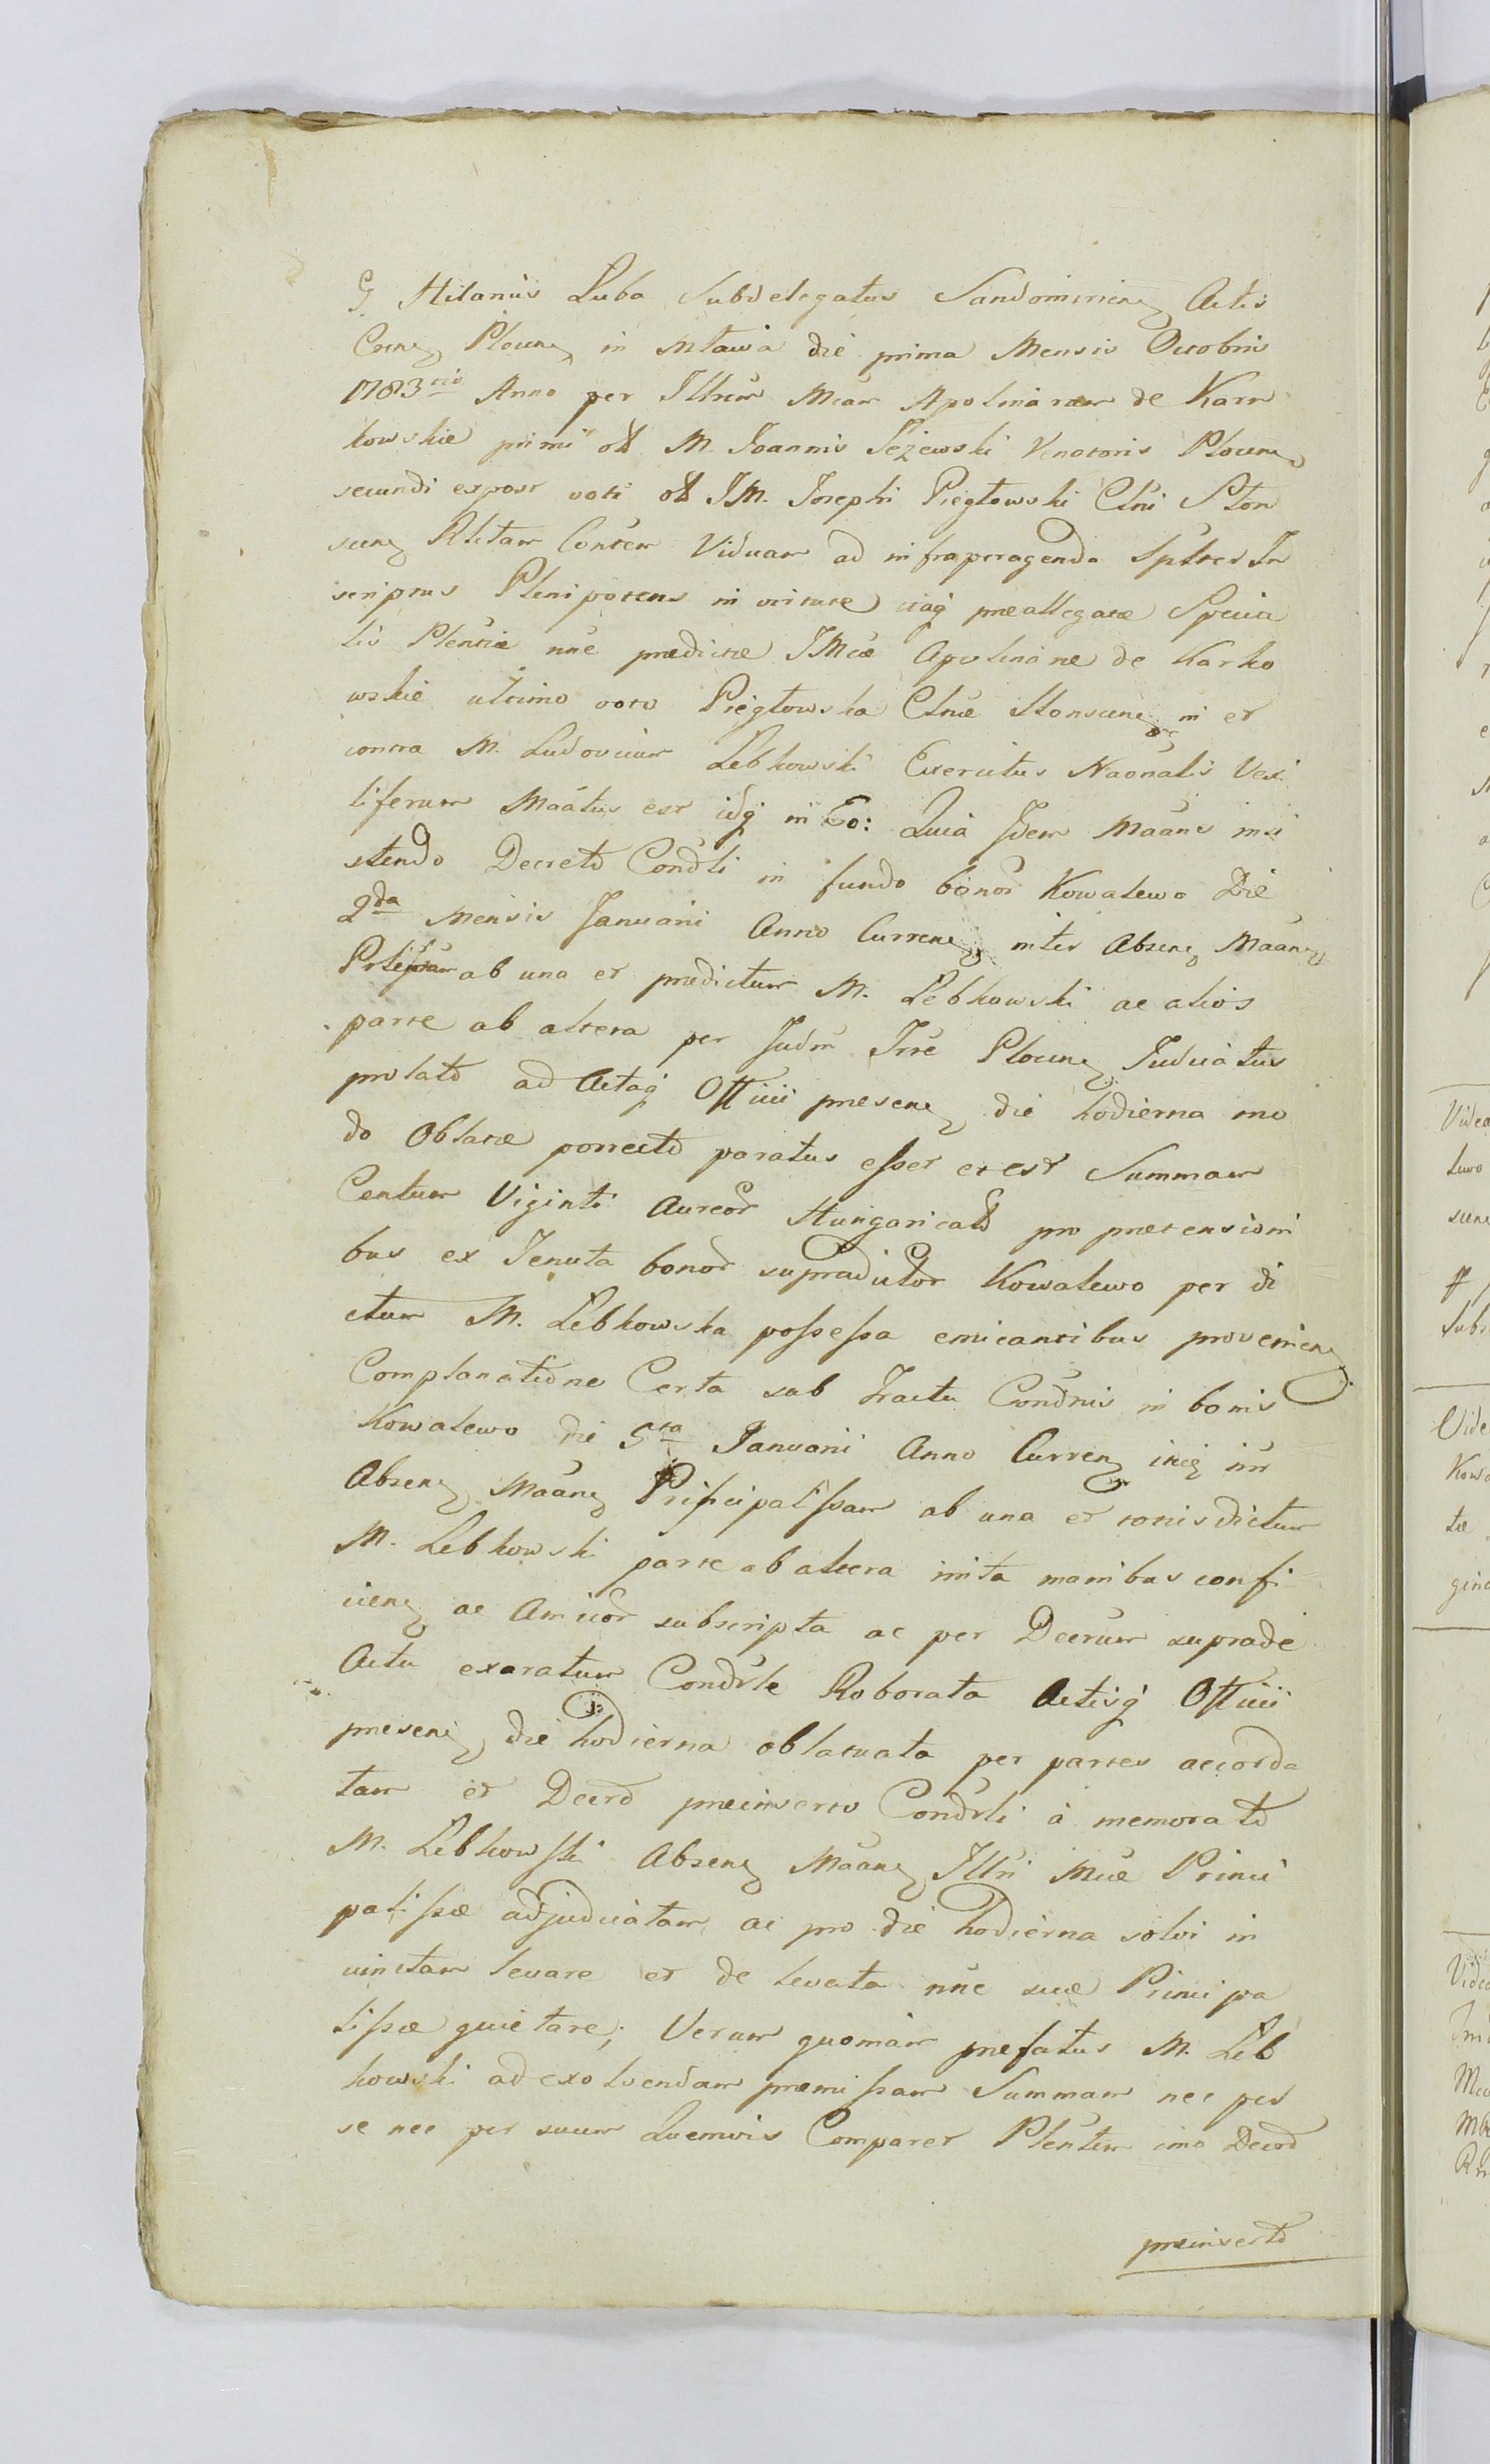 G. Hilarius Luba Subdelegatus Sandomirien Actis
Cren Plocen in Mlawa die prima Mensis Octobris
1783tio Anno per Illrem Mcam Apolinaram de Karn
kowskie primi ol M. Joannis Jeżewski Venatoris Plocen
secundi expost voti ol JM. Josephi Piegłowski Clni Ston
scen Rlictam Consem Viduam ad infraperagenda Spltes In
scriptus Plenipotens in virtute ejusq preallegatae Specia
lis Plentiae nne praedictae JMcae Apolinarae de Karko
wskie ultimo voto Piegłowska Clnae Stonscen in et
contra M. Ludovicum Lebkowski Exercitus Naonalis Vexi
liferum Maatus est idq in Eo: Quia Idem Maans insi
stendo Decreto Condli in fundo bonor Kowalewo Die
2da Mensis Januarii Anno Curren inter Absen Maan
ab una et praedictum M. Lebkowski ac alios
parte ab altera per Judm Trre Plocen Judicatus
prolato ad Actaq Officii presen die hodierna mo
do Oblatae porrecto paratus esset et est Summam
Centum Viginti Aureor Hungarical pro praetensioni
bus ex Tenuta bonor supradictor Kowalewo per di
ctum M. Lebkowska possessa emicantibus provenien
Complanatione Certa sub Tractu Condnis in bonis
Kowalewo die 5ta Januarii Anno Curren
Absen Maan Principalissam ab una et totiesdictum
M. Lebkowski parte ab altera inita manibus confi
cien ac Amicor subscripta ac per Decrum supra de
Actu exaratum Condrle Roborata Actisq Officii
presen die hodierna oblatuata per partes accorda
tam et Decro preinserto Condrli à memorato
M. Lebkowski Absen Maan Illri Mcae Princi
palissae adjudicatam ac pro die hodierna solvi in
vinctam levare et de levata nne suae Principa
lissae quietare; Verum quoniam prefatus M. Leb
kowski ad exolvendam praemissam Summam nec per
se nec per suum Quemvis Comparet Plentem imo Decro
preinserto